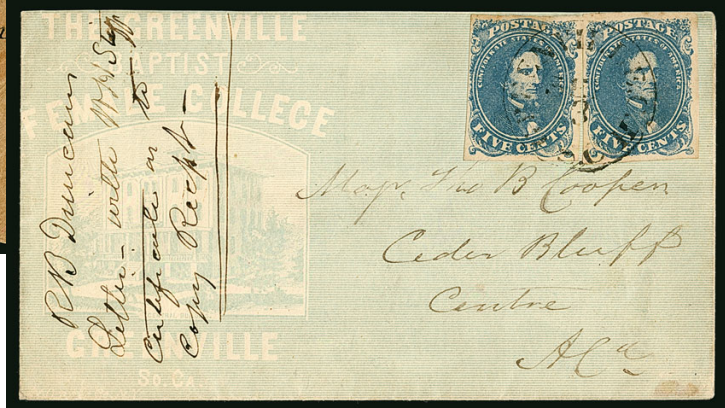 THE GREENVILLE
BAPTIST
FEMALE COLLEGE
GREENVILLE
So. Ca.
R B Duncans
Letter - with W H
Certificate on to
Copy Recpt -
POSTAGE
CONFEDERATE STATES OF AMERICA
FIVE CENTS
POSTAGE
CONFEDERATE STATES OF AMERICA
FIVE CENTS
S.C.
Maj. Tho B Cooper
Ceder Bluff
Centre
Ala